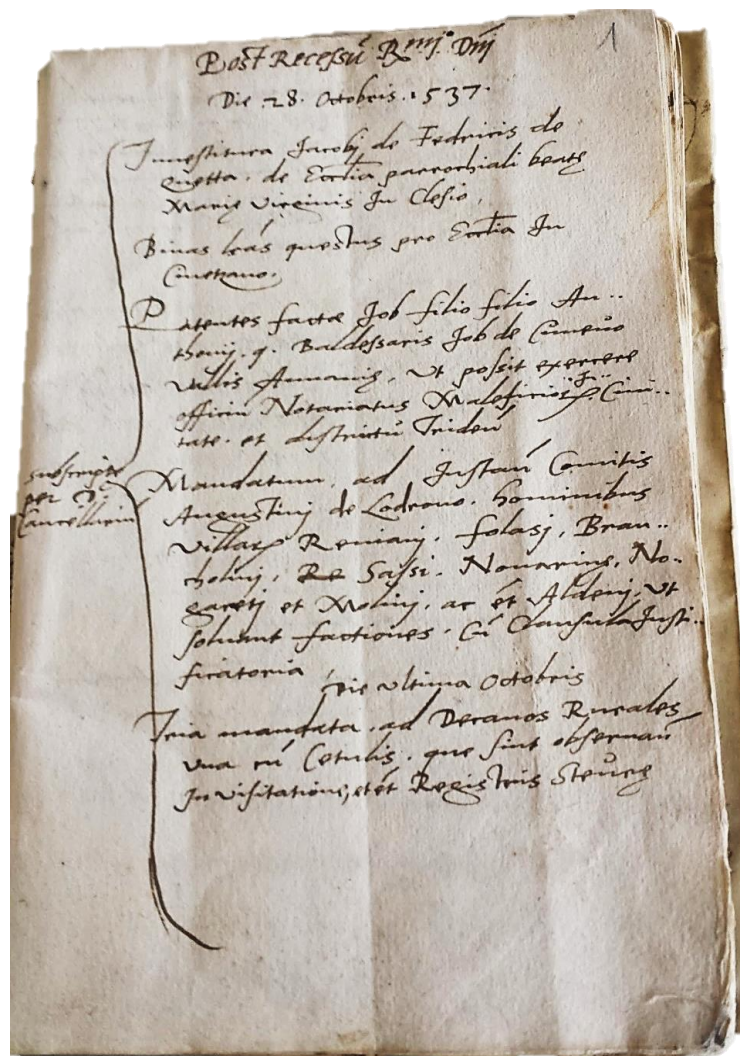 1
Post Recessũ Rmj. Dnj
Die .28. Octobris .1537.
Inuestitura Jacobj de Fedricis de
Quetta. de Ecctia parrochiali beatę
Marię virginis In Clesio,
Binas lrás questus pro Ecctia In
Patentes factæ Job filio filio An..
thonij. q. Baldessaris Job de Cuneuo
Vallis Annanię, vt possit exercere
officiũ Notariatus Maleficioꝝ In Ciui..
tate. et districtũ Tridenˊ
subscripte
per D.
Cancellariũ
Mandatum, ad Instanˊ Comitis
Augustinj de Lodrono. hominibus
Villarꝝ Remianj. folasj, Bran..
cholinj, Re Sassi. Nouarini, No..
garetj et Molinj. ac ét Aldenj. vt
soluant factiones. Cũ Clausula Justi..
ficatoria
Die vltima Octobris
Tria mandata. ad Decanos Rurales
vna cũ Cetulis. que sint obseruanˊ
In visitatione, et ét Registris Steurę